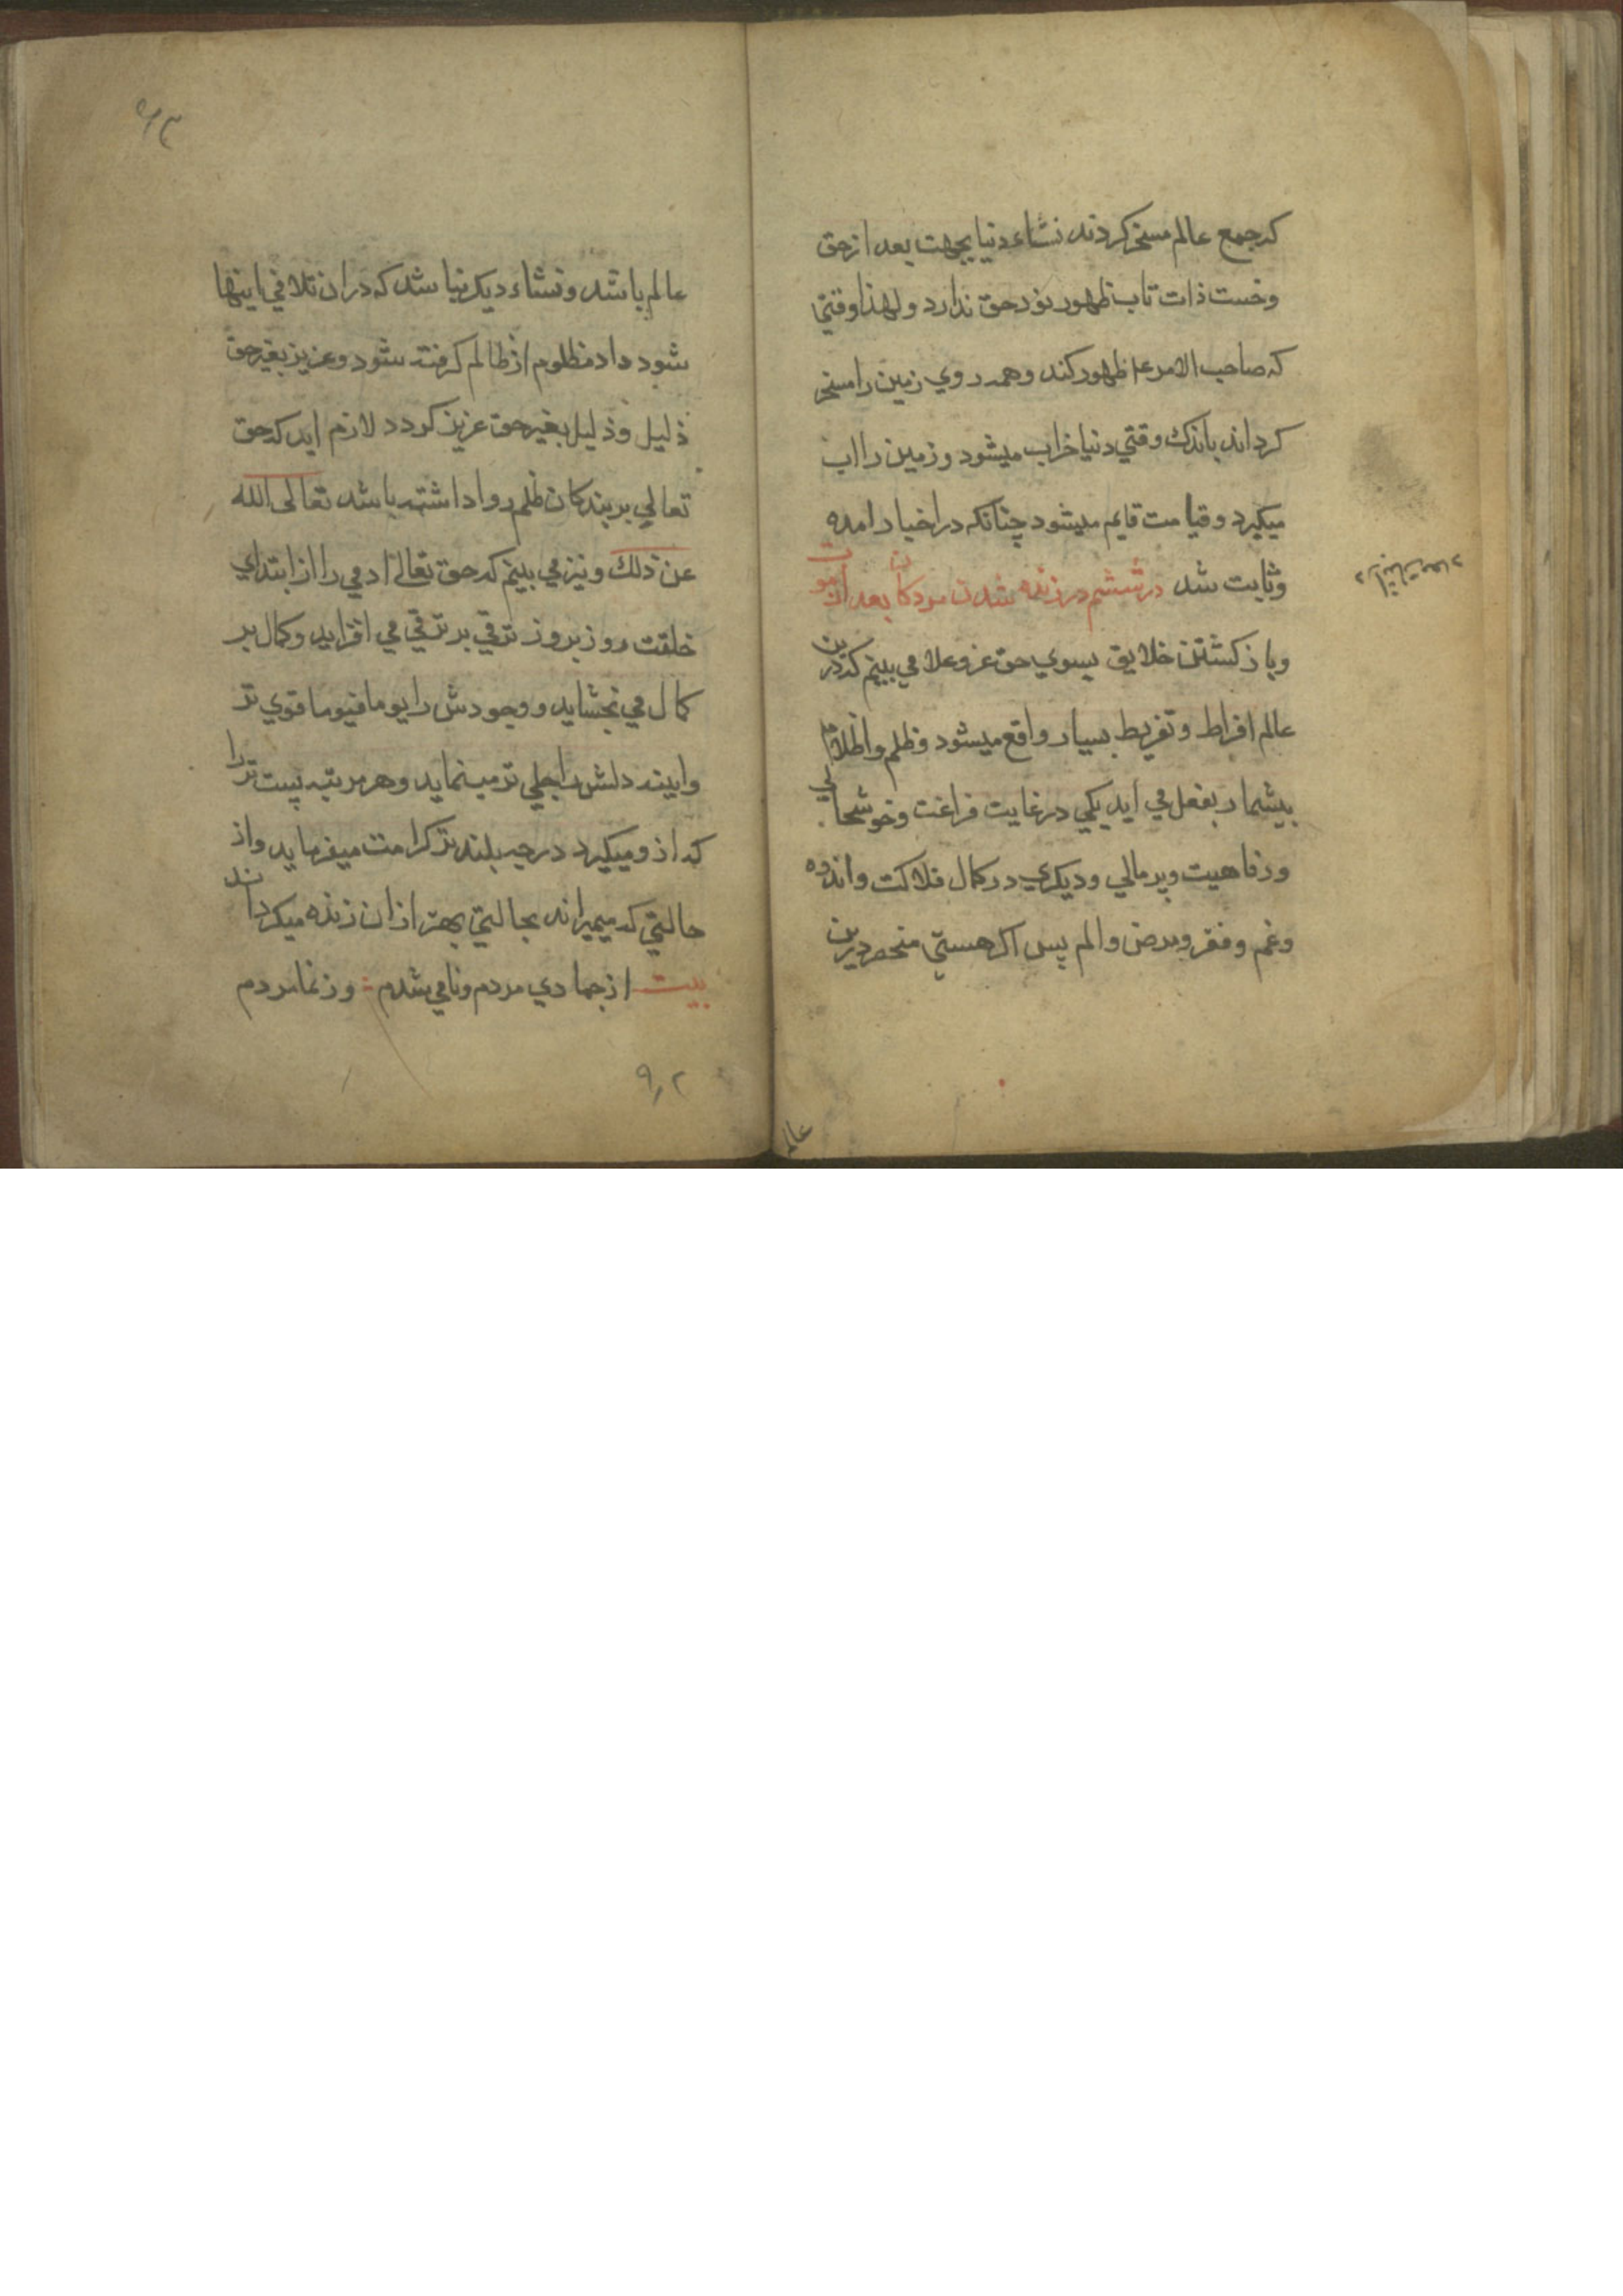 که جمع عالم مسخر کردند نشاء دنیا بجهت بعد از حق
وخست ذات تاب ظهور نور حق ندارد ولهذا وقتی
که صاحب الامر ع ظهور کند وهمه روي زمین را مسخر
کرداند باندک وقتي دنیا خراب میشود وزمین را اب
میکیرد وقیامت قایم میشود چنانکه در اخبار امده
وثابت شد در ششم در زنده شدن مردکان بعد از موت
وباز کشتن خلایق بسوي حق عز وعلا مي بینم که درین
عالم افراط وتفریط بسیار واقع میشود وظلم واظلام
بیشمار بفعل مي اید یکي در غایت فراغت وخوشحالي
ورفاهیت وپر مالي ودیکري در کمال فلاکت واندوه
وغم وفقر ومرض والم پس اکر هستي منحصر درین
در اثبات معاد
عالم
عالم باشد ونشاء دیکر نباشد که در ان تلافي اینها
شود داد مظلوم از ظالم کرفته شود وعزیز بغیر حق
ذلیل وذلیل بغیر حق عزیز کردد لازم اید که حق
تعالي بر بندکان ظلم روا داشته باشد تعالی الله
عن ذلك ونیز مي بینم که حق تعالی ادمي را از ابتداي
خلقت روز بروز ترقي بر ترقي مي افزاید وکمال بر
کمال مي بخشاید ووجودش را یوما فیوما قوي تر
واینه دلش را جلي تر مینماید وهر مرتبه پست تر را
که از ومیکیرد درجه بلند تر کرامت میفرماید واز
حالتي که میمیراند بحالتي بهتر از ان زنده میکرداند
بیت از جمادي مردم ونامي شدم وز نما مردم
۹۲